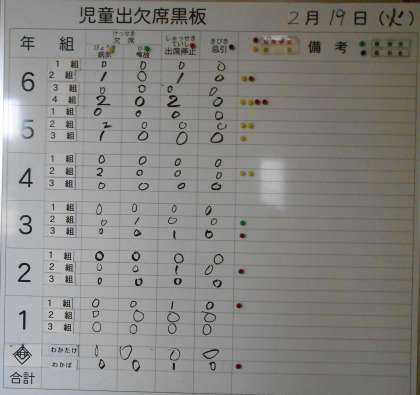 児童出欠席黒板 2月19日(火)
年 組 けっせき 欠席 びょうき 病気 じこ 事故 しゅっせきていし 出席停止 きびき 忌引 備考
6 1組 0 0 0 0
2組 1 0 1 0
3組 0 0 0 0
4組 2 0 2 0
5 1組 0 0 0 0
2組 2 0 0 0
3組 1 0 0 0
4 1組 0 0 0 0
2組 2 0 0 0
3組 0 0 0 0
3 1組 0 0 0 0
2組 0 1 0 0
3組 0 0 1 0
2 1組 0 0 0 0
2組 0 0 1 0
3組 0 0 0 0
1 1組 0 0 1 0
2組 0 0 0 0
3組 0 0 0 0
わかたけ 0 0 0
わかば 0 0 1 0
合計